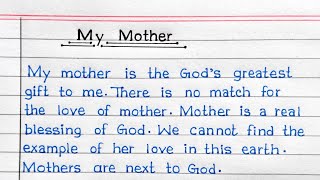 My Mother
My mother is the God's greatest
gift to me. There is no match for
the love of mother. Mother is a real
blessing of God. We cannot find the
example of her love in this earth.
Mothers are next to God.